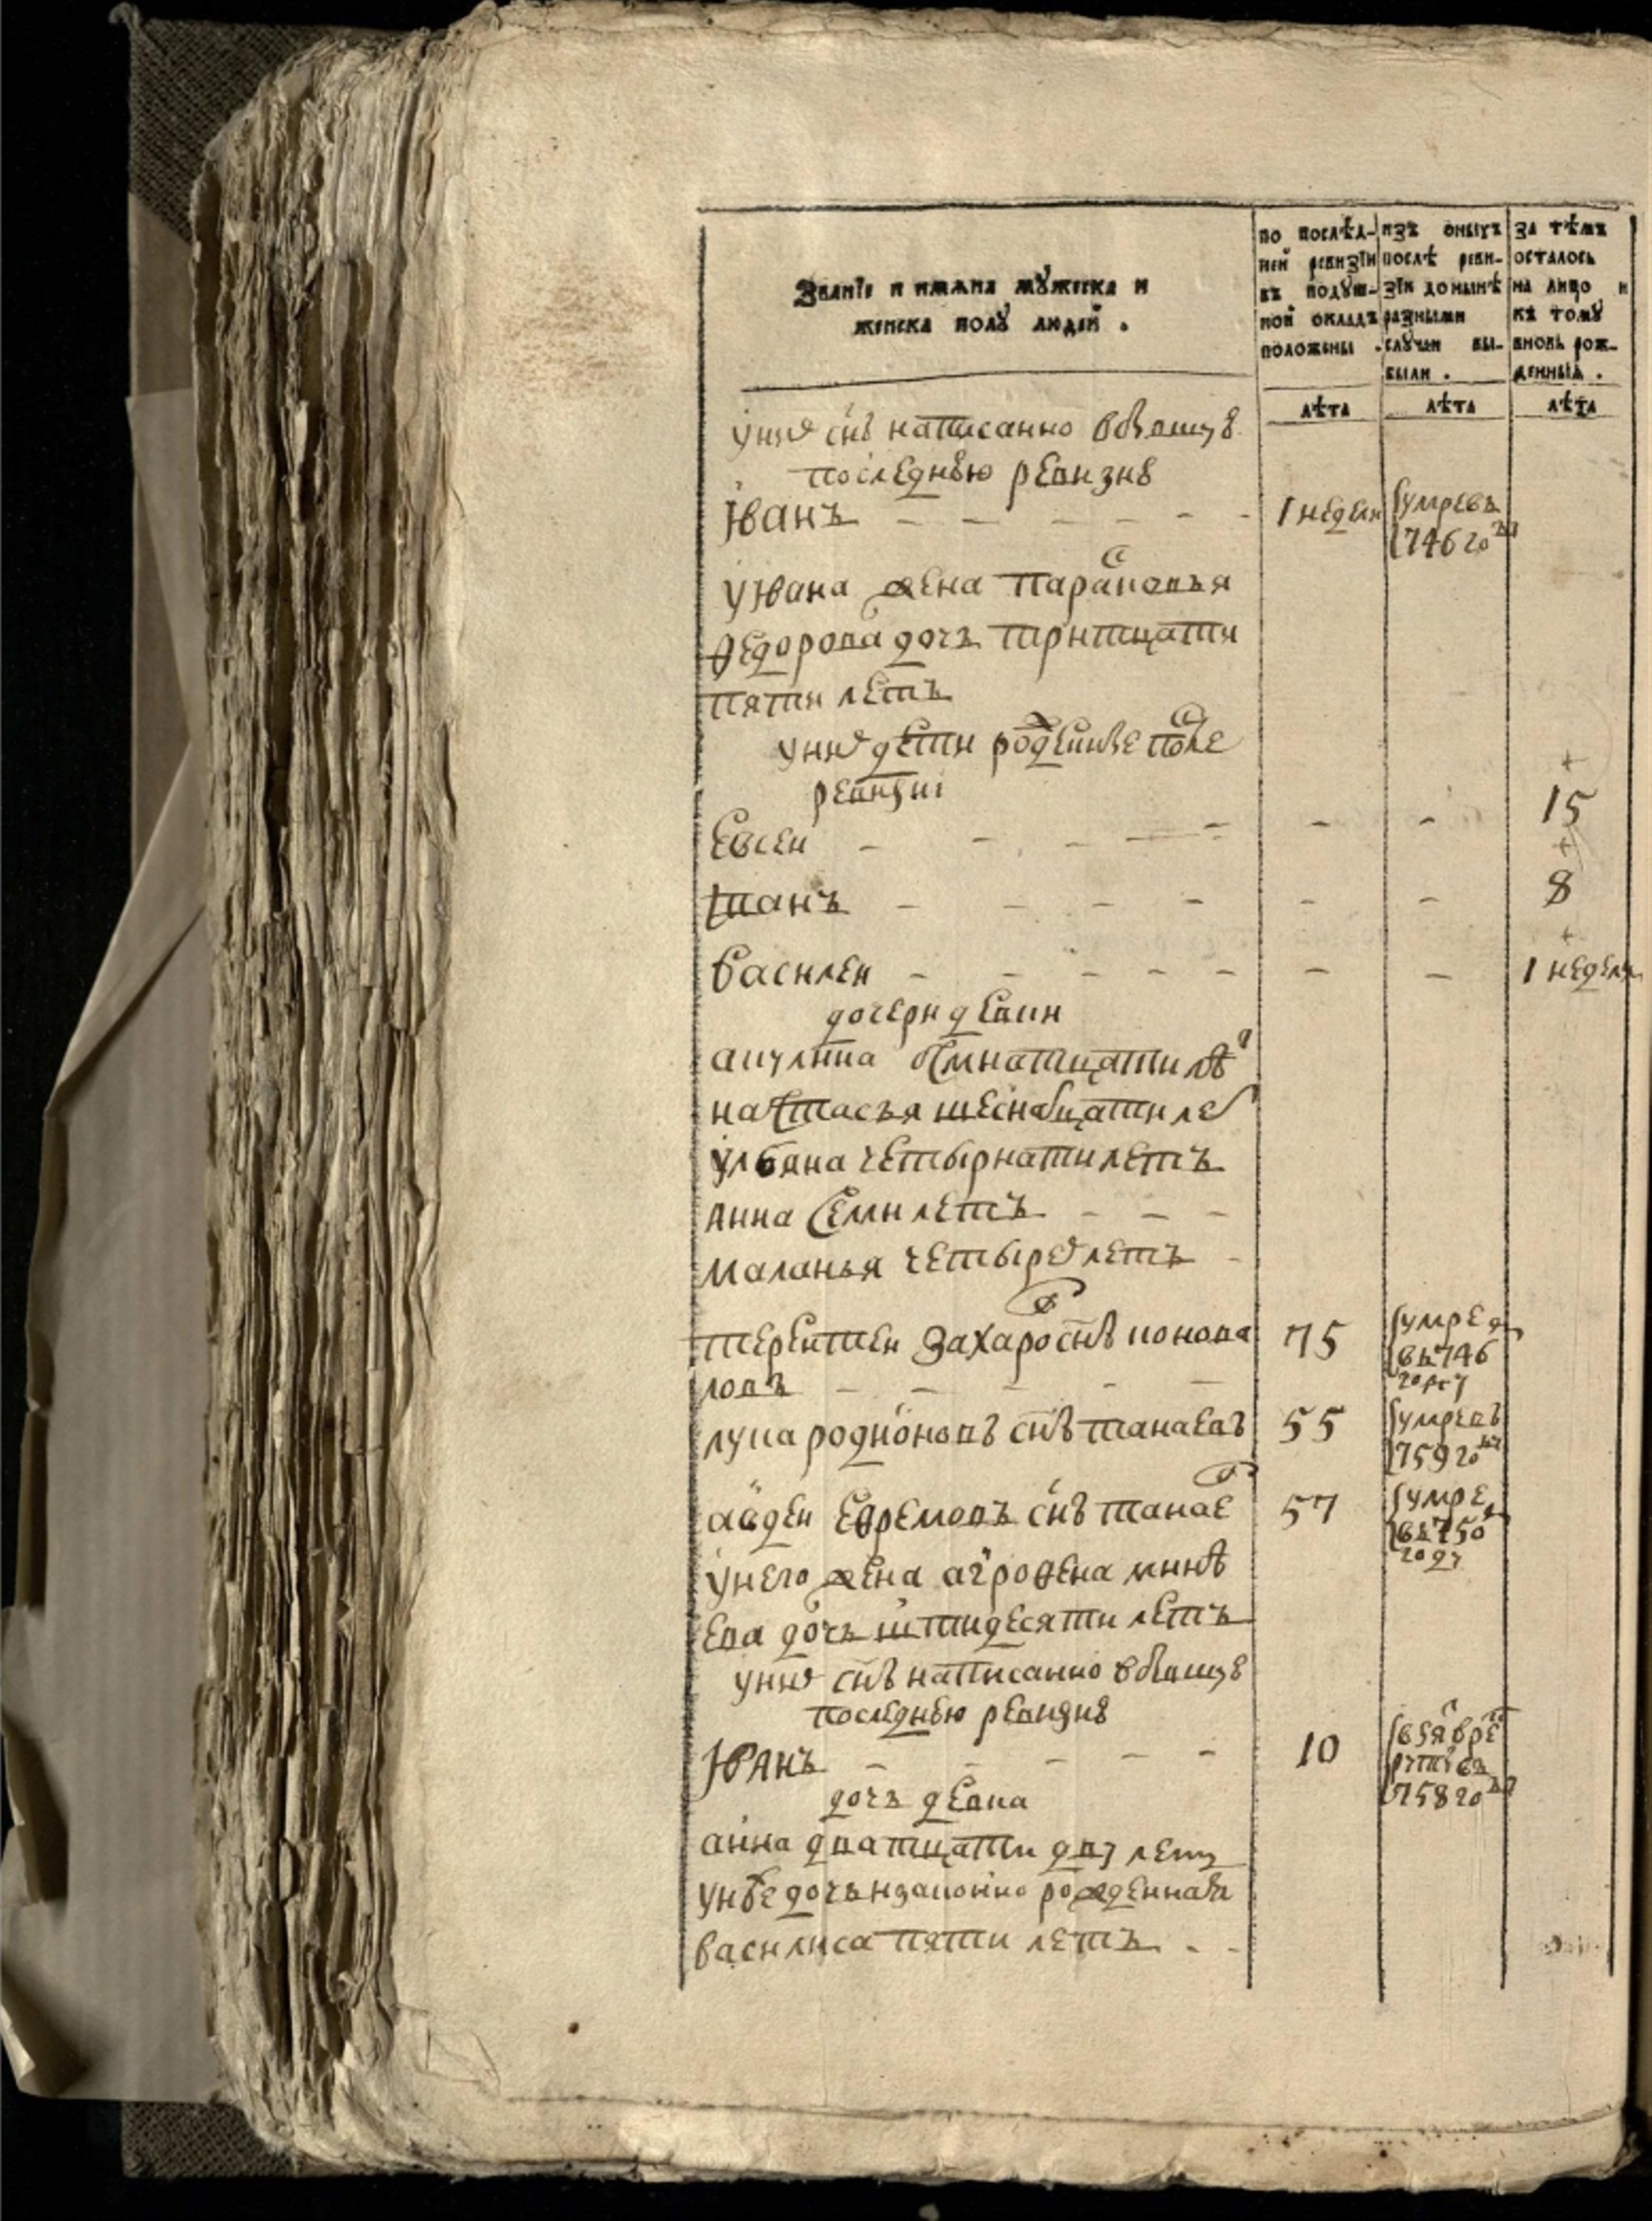 Званїе и имѧна мꙋжеска и
женска полꙋ людей .
по послѣд-
ней ревизїи
въ подꙋш-
ной окладъ
положены .
изъ оныхъ
послѣ реви-
зїи до нынѣ
разными
слꙋчаи вы-
были .
за тѣмъ
осталось
на лицо и
къ томꙋ
вновь рож-
денныѧ .
лѣта лѣта лѣта
у них снъ написанно в бывшую
последнюю ревизию
Іванъ - - - - - - 1 недели умре въ
746 году
у Івана жена парасковья
федорова дочь тритцати
пяти летъ
у них дети рожденные после
ревизиі
Евсеи - - - - - - 15
Степанъ - - - - - - 8
Василеи - - - - - - - 1 недели
дочери девки
акулина осмнатцати лѣт
настасья шеснатцати лет
ульяна четырнати летъ
анна семи летъ - - -
маланья четырех летъ -
терентеи захаров снъ коново
ловъ - - - - - 75 умре
въ 746
году
лука родионовъ снъ танаевъ 55 умре въ
759 году
авдеи ефремовъ снъ танаев 57 умре
въ 750
году
у него жена аграфена минѣ
ева дочь шти десяти летъ
у них снъ написанно в бывшую
последнюю ревизию
Іванъ - - - - - 10 взят в рек
руты въ
758 году
дочь девка
анна дватцати дву летъ
у нее дочь незаконно рожденная
василиса пяти летъ - -